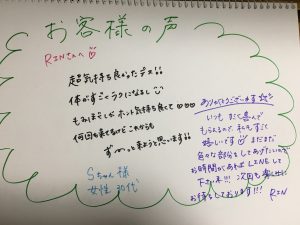 お客様の声
RINさんへ
超気持ち良かったデス!!
体がすごくラクになるし
もみほぐしがホント気持ち良くて♡♡♡
何回も来てるけどこれからも
ずーっと来ようと思います!!
Sちゃん様
女性 30代
ありがとうございます
いつもすごく喜んで
もらえるので、私もすごく
嬉しいです まだまだ
色々な部分をしてあげたいので
お時間があればLINEして
下さいネ!!! 次回も楽しみに
お待ちしております!!!
RIN